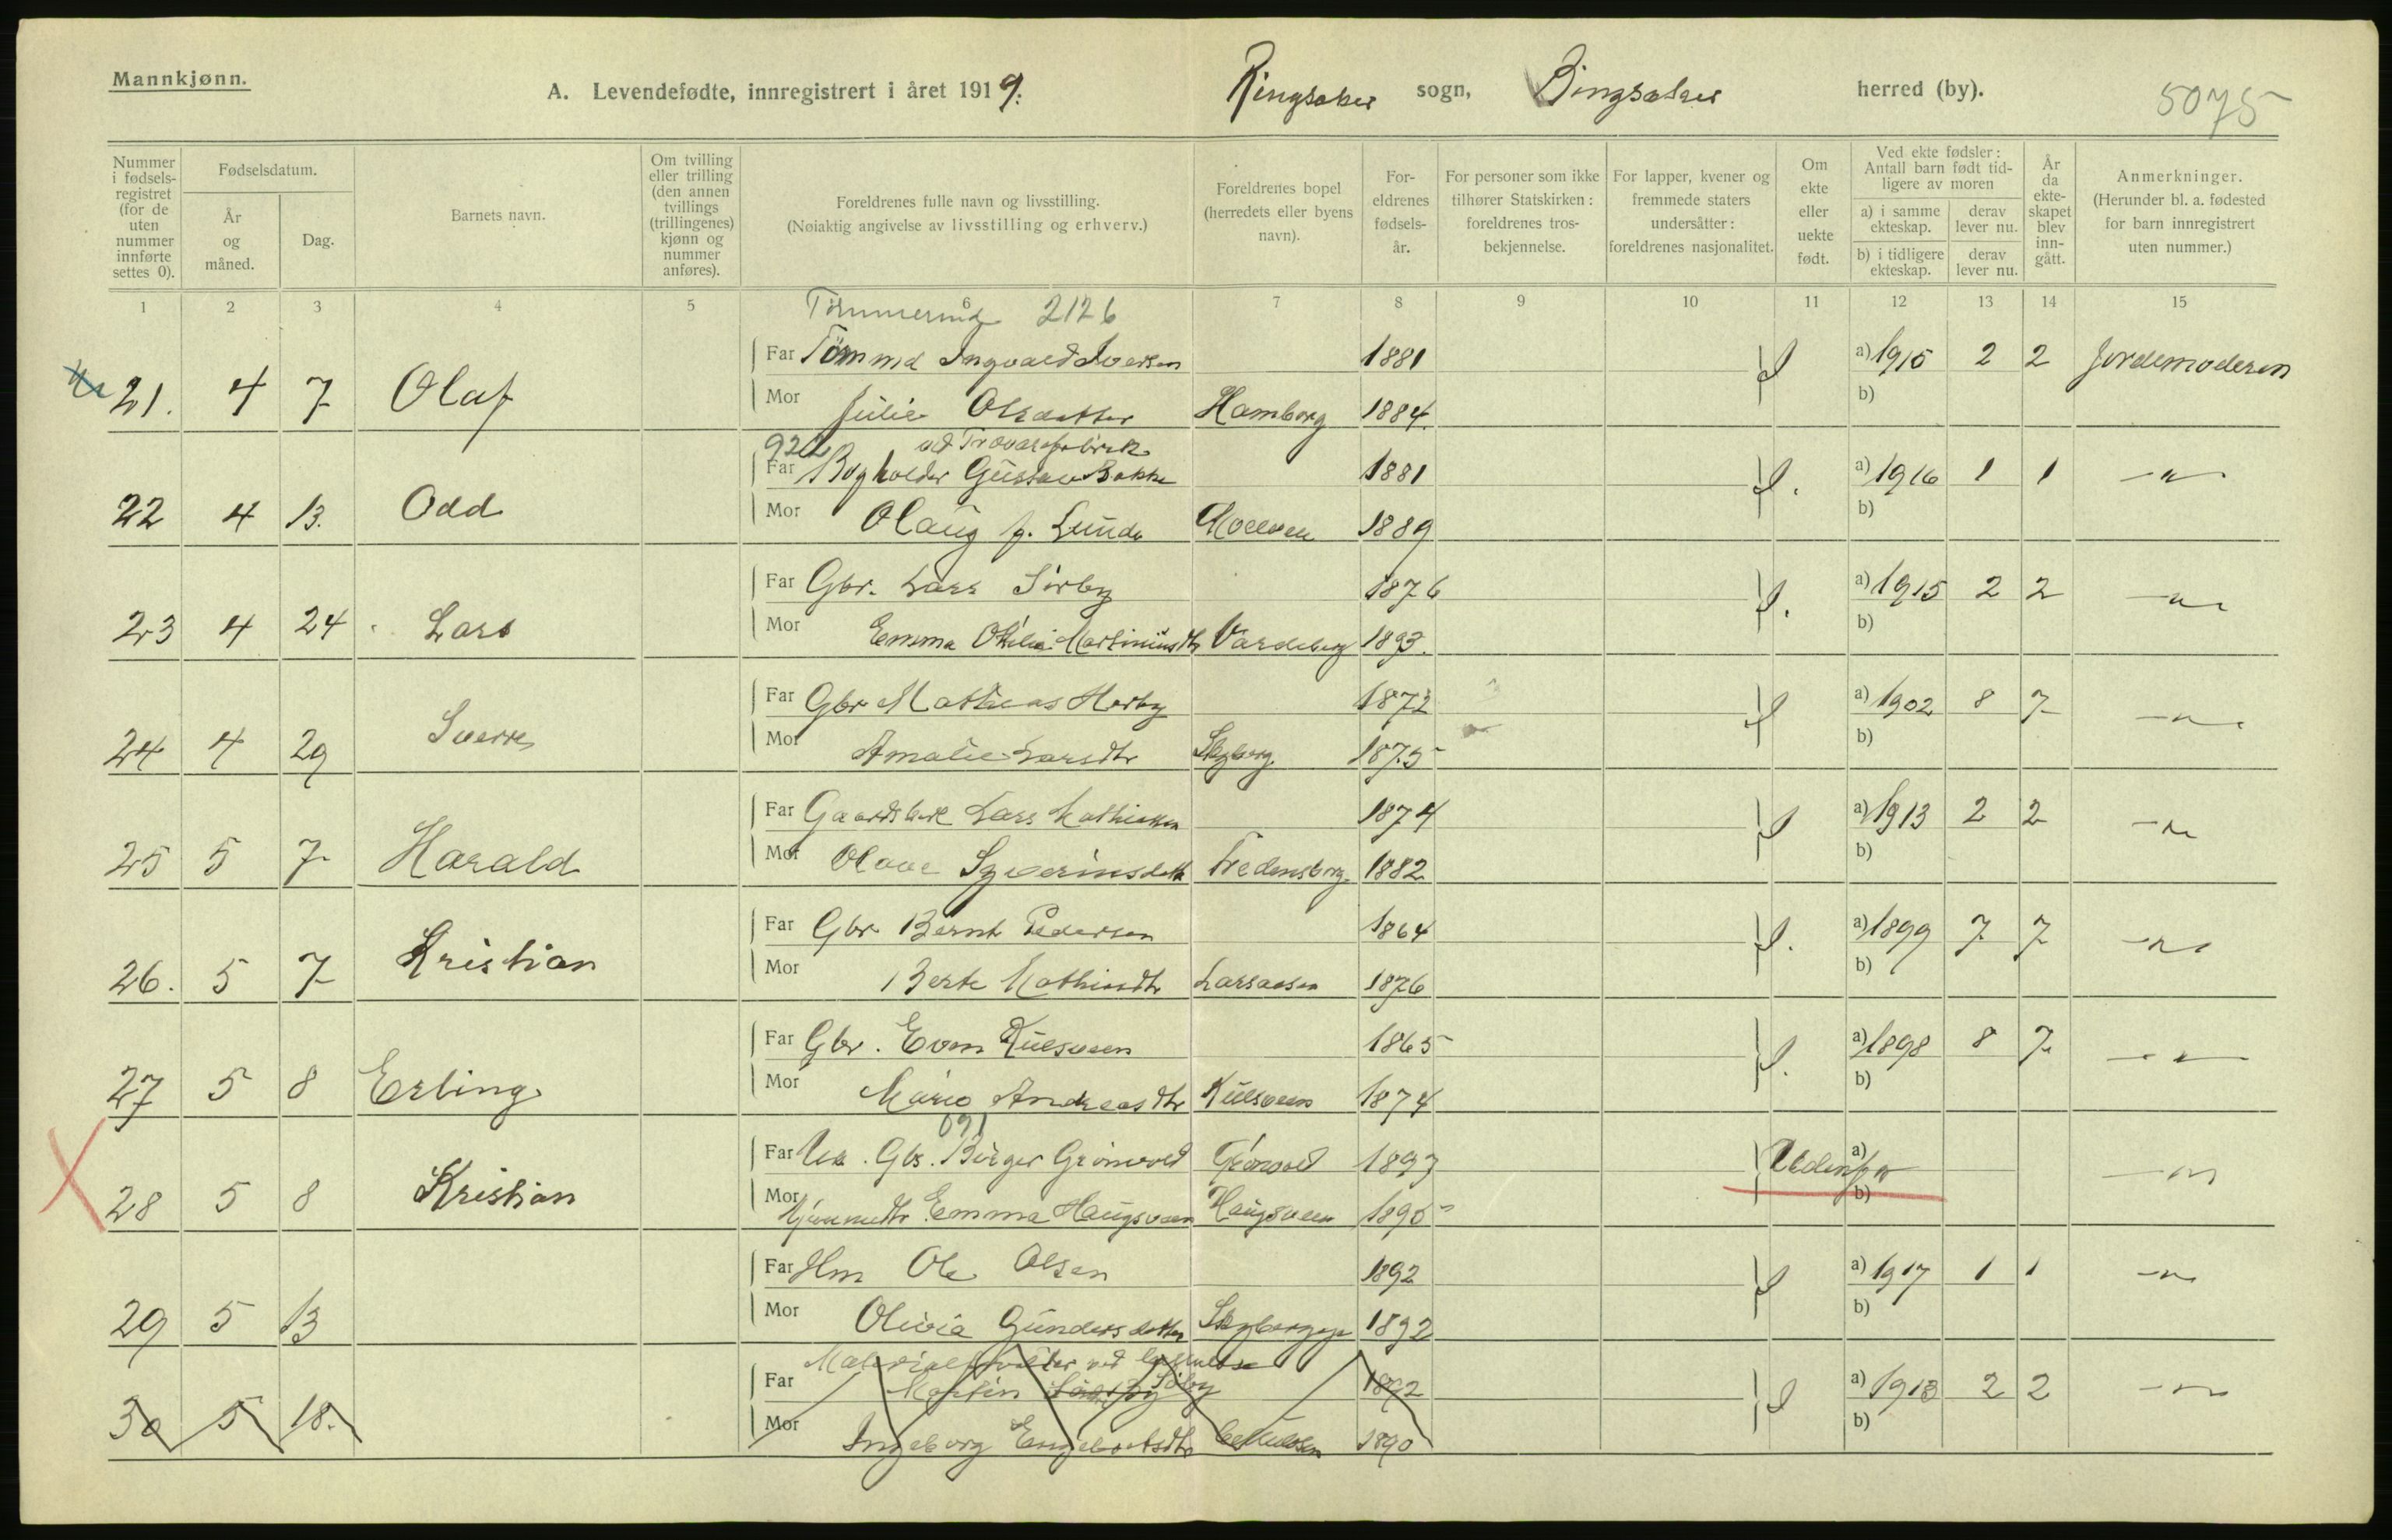 Mannkjønn.
A. Levendefødte, innregistrert i året 1919. Ringsaker sogn, Ringsaker herred (by). 5075
Nummer i fødselsregistret (for de uten nummer innførte settes 0).
Fødselsdatum.
År og måned.
Dag.
Barnets navn.
Om tvilling eller trilling (den annen tvillings (trillingenes) kjønn og nummer anføres).
Foreldrenes fulle navn og livsstilling.
(Nøiaktig angivelse av livsstilling og erhverv.)
Foreldrenes bopel (herredets eller byens navn).
Foreldrenes fødselsår.
For personer som ikke tilhører Statskirken: foreldrenes trosbekjennelse.
For lapper, kvener og fremmede staters undersåtter: foreldrenes nasjonalitet.
Om ekte eller uekte født.
Ved ekte fødsler: Antall barn født tidligere av moren
a) i samme ekteskap. derav lever nu.
b) i tidligere ekteskap. derav lever nu.
År da ekteskapet blev inngått.
Anmerkninger.
(Herunder bl. a. fødested for barn innregistrert uten nummer.)
1 2 3 4 5 6 7 8 9 10 11 12 13 14 15
2126
Far Tömmd Ingvald Iversen 1881 a) 1915 2 2 Jordemoderen
21. 4 7 Olaf Mor Julie Olsdatter Hamborg 1884 b)
922 ved Trævarefabrik
Far Bogholder Gustav Bakke 1881 a) 1916 1 1 -"-
22 4 13. Odd Mor Olaug f. Lunde Moelven 1889 b)
Far Gbr. Lars Sörby 1876 a) 1915 2 2 -"-
23 4 24 Lars Mor Emma Otilie Martiniusdtr Vardeberg 1893. b)
Far Gbr Mathias Horby 1872 a) 1902 8 7 -"-
24 4 29 Sverre Mor Amalie Larsdtr Skyberg 1875 b)
Far Gaardsbest Lars Mathiassen 1874 a) 1913 2 2 -"-
25 5 7 Harald Mor Olave Syverinsdatt Fredensborg 1882 b)
Far Gbr Bernt Pedersen 1864 a) 1899 7 7 -"-
26. 5 7 Kristian Mor Berte Mathiasdtr Larsaasen 1876 b)
Far Gbr. Even Kulsveen 1865 a) 1898 8 7 -"-
27 5 8 Erling Mor Marie Andreasdtr Kulsveen 1874 b)
691
Far Uk. Gbs. Birger Grönvold Grönvold 1893 Udenfor a) -"-
28 5 8 Kristian Mor Hjemmedtr Emma Haugsveen Haugsveen 1895 b)
Far Hm Ole Olsen 1892 a) 1917 1 1 -"-
29 5 13 Mor Olivia Gundersdatter Skybergeje 1892 b)
Materialforvalter ved
Far Martin Söby 1892 a) 1918 2 2 -"-
30 5 18. Mor Ingeborg Engebretsdtr 1890 b)